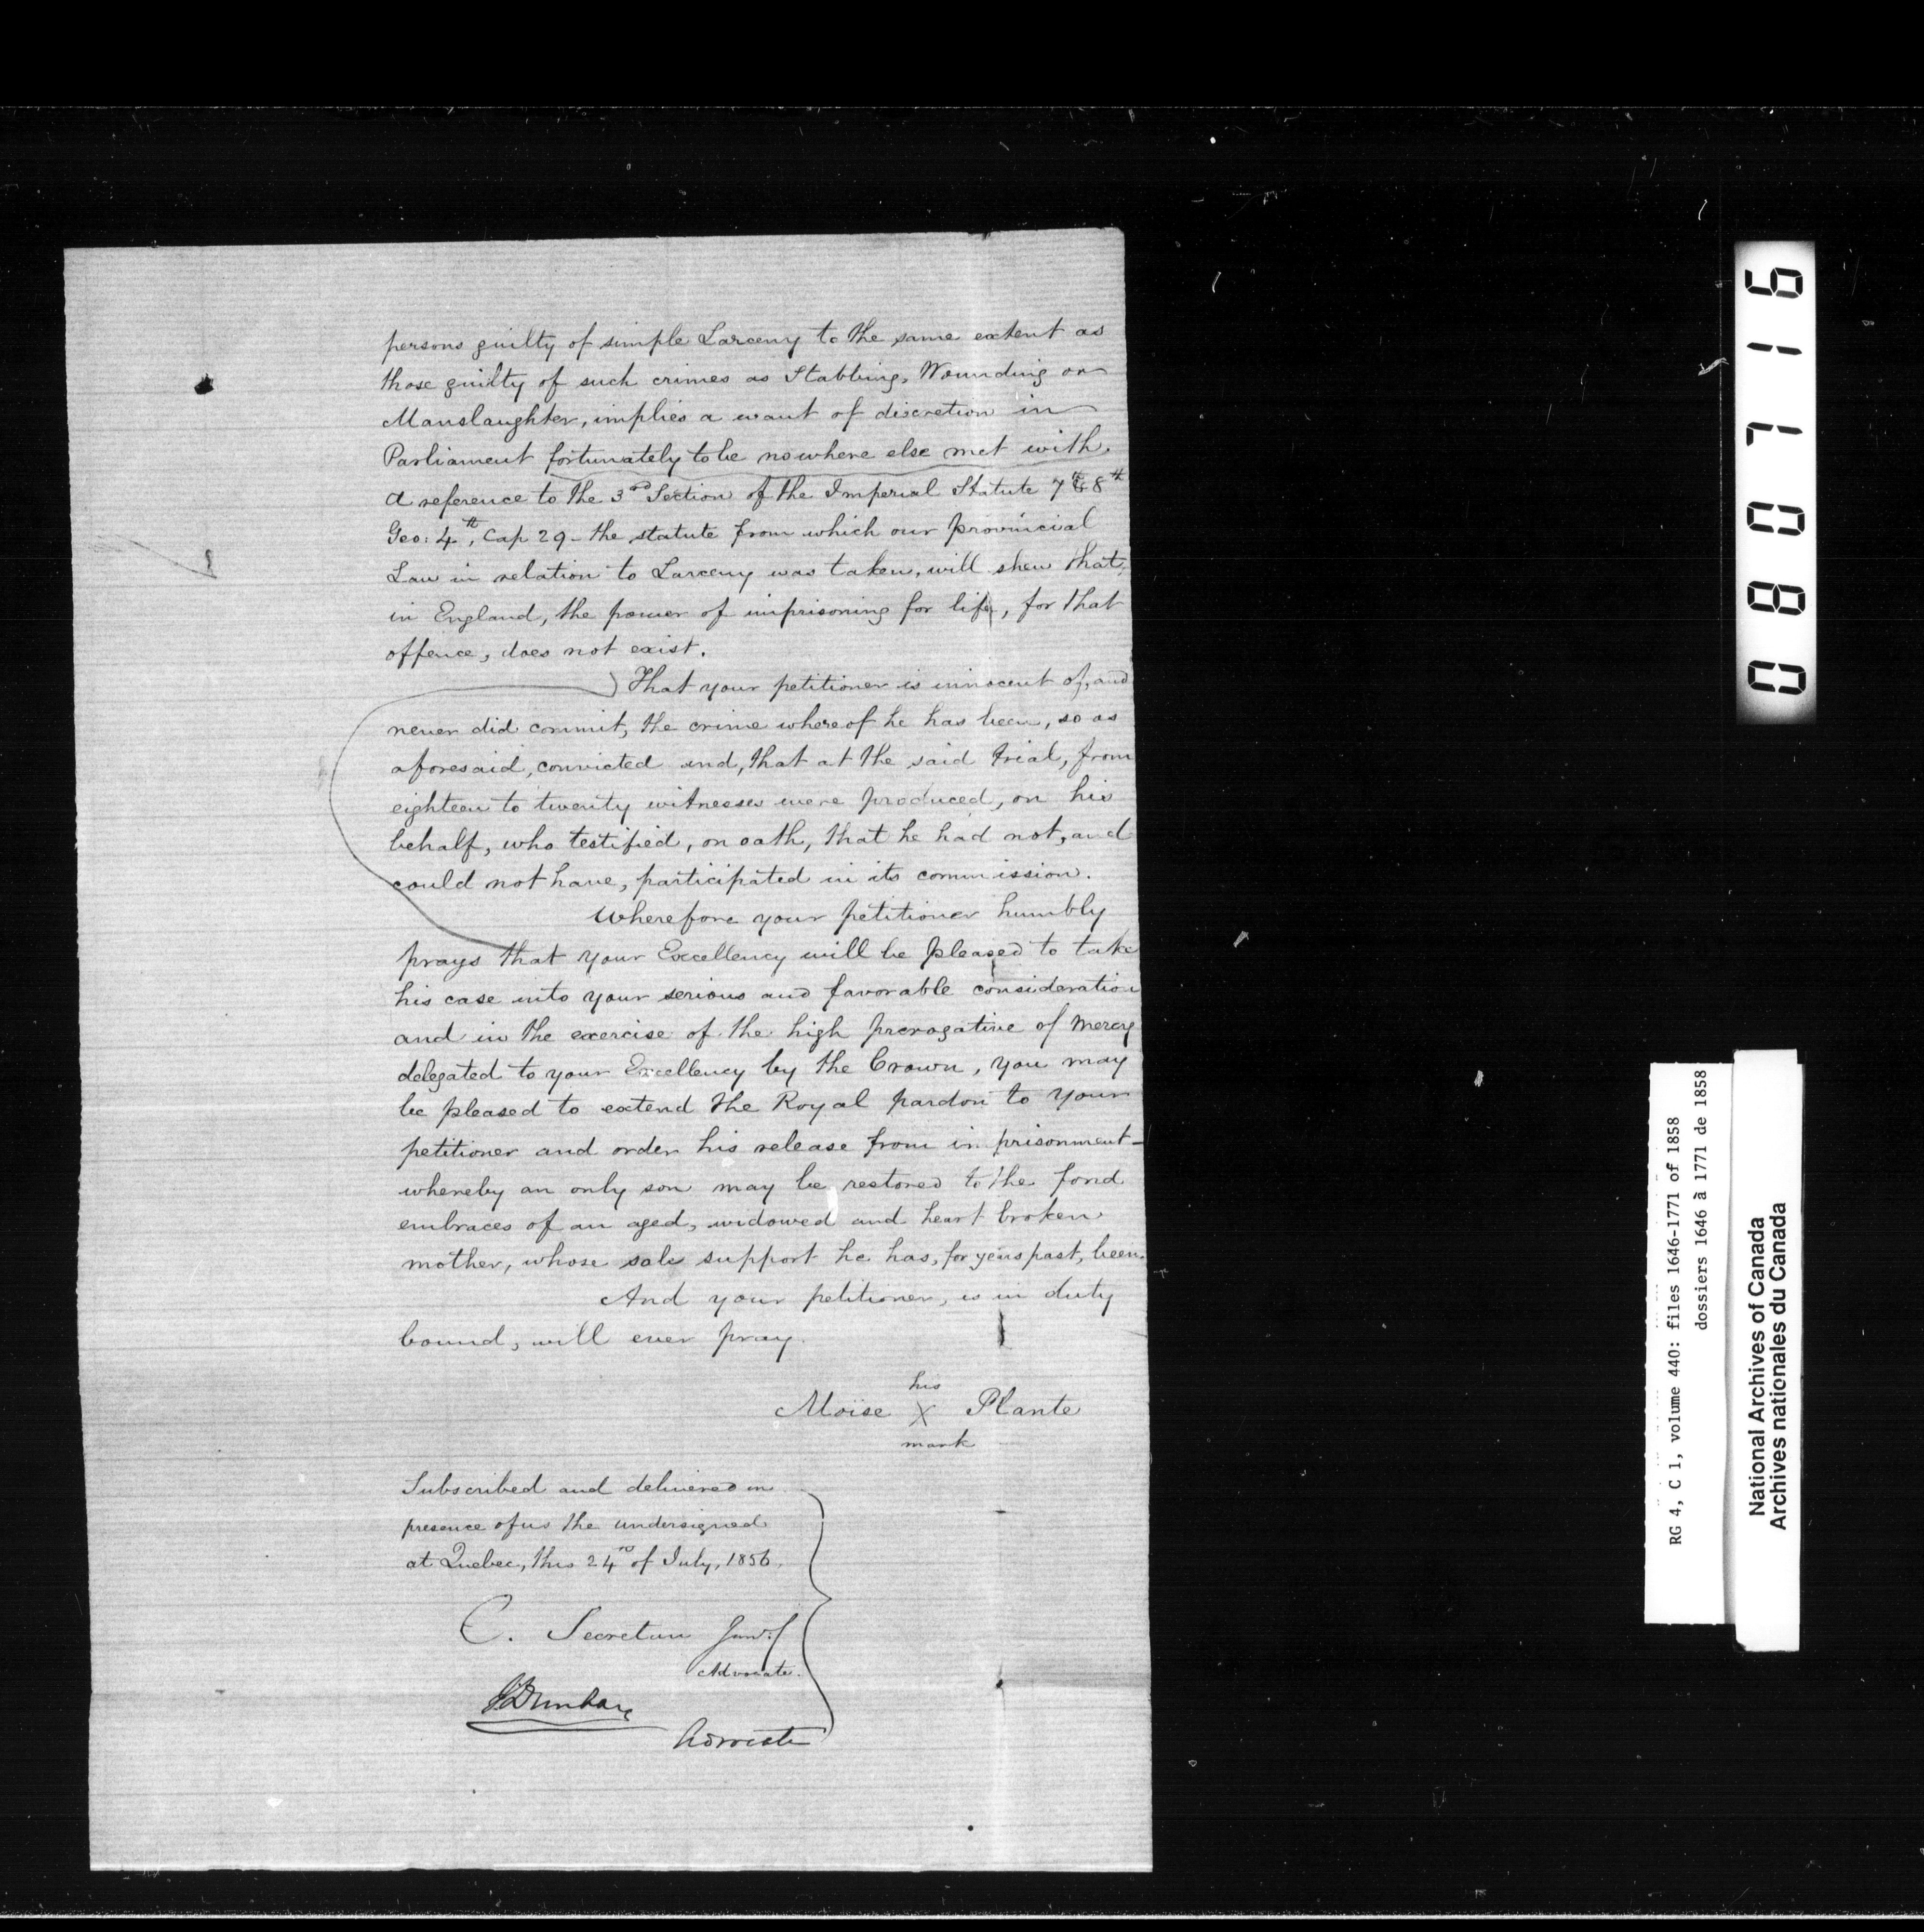 persons guilty of simple Larceny to the same extent as
those guilty of such crimes as Stabbing, Wounding or
Manslaughter, implies a want of discretion in
Parliament fortunately to be nowhere else met with.
A reference to the 3rd Section of the Imperial Statute 7th & 8th
Geo: 4th, Cap 29 - the statute from which our provincial
Law in relation to Larceny was taken, will shew that,
in England, the power of imprisoning for life, for that
offence, does not exist.
That your petitioner is innocent of, and
never did commit, the crime whereof he has been, so as
aforesaid, convicted and, that at the said trial, from
eighteen to twenty witnesses were produced, on his
behalf, who testified, on oath, that he had not, and
could not have, participated in its commission.
Wherefore your petitioner humbly
prays that your Excellency will be pleased to take
his case into your serious and favorable consideration
and in the exercise of the high prerogative of mercy
delegated to your Excellency by the Crown, you may
be pleased to extend the Royal pardon to your
petitioner and order his release from imprisonment -
whereby an only son may be restored to the fond
embraces of an aged, widowed and heart broken
mother, whose sole support he has, for years past, been.
And your petitioner, as in duty
bound, will ever pray.
his
Moïse X Plante
mark
Subscribed and delivered in
presence of us the undersigned
at Quebec, this 24 of July, 1856.
C. Secretan Junr
Advocate.
Dunbar
Advocate
080716
RG 4, C 1, volume 440: files 1646-1771 of 1858
dossiers 1646 à 1771 de 1858
National Archives of Canada
Archives nationales du Canada